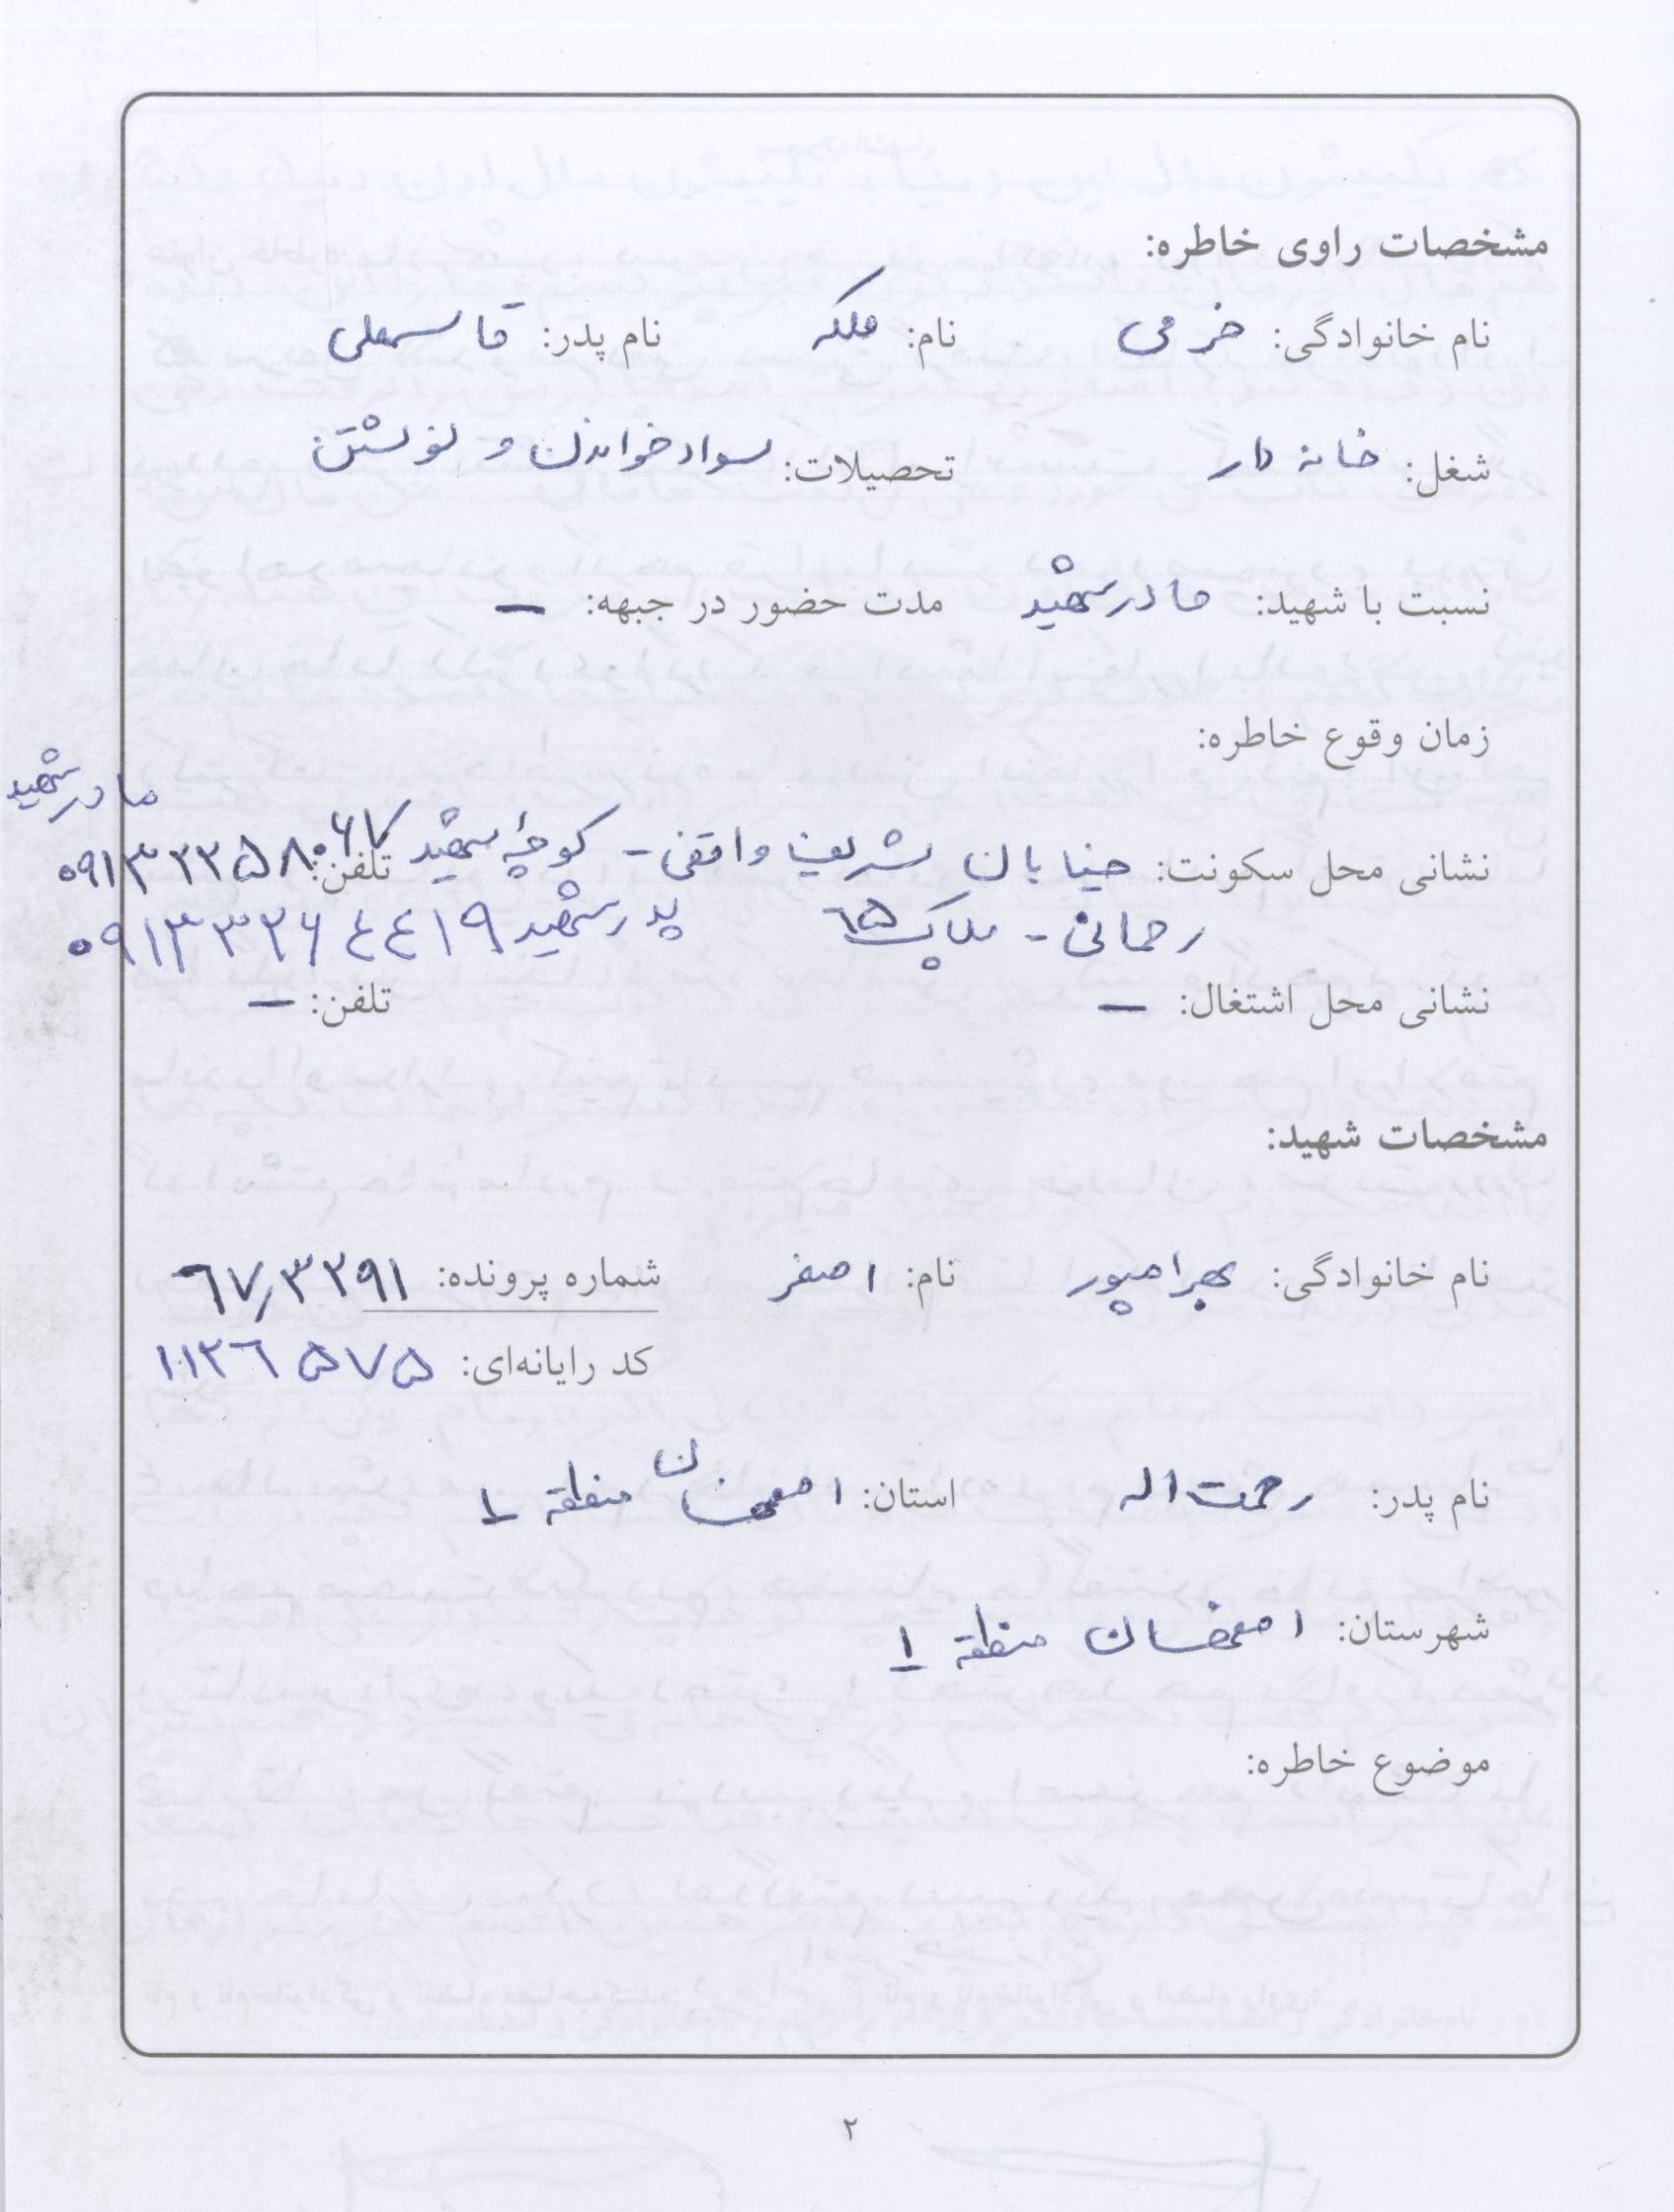 مشخصات راوی خاطره:
نام خانوادگی: خرمی نام: ملکه نام پدر: قاسمعلی
شغل: خانه دار تحصیلات: سواد خواندن و نوشتن
نسبت با شهید: مادر شهید مدت حضور در جبهه: –
زمان وقوع خاطره:
مادر شهید
نشانی محل سکونت: خیابان شریف واقفی - کوچه شهید تلفن: ۰۹۱۳۲۲۵۸۰۶۷
رحمانی - پلاک ۶۵ پدر شهید ۰۹۱۳۳۲۶۴۴۱۹
نشانی محل اشتغال: – تلفن: –
مشخصات شهید:
نام خانوادگی: بهرامپور نام: اصغر شماره پرونده: ۶۷/۳۲۹۱
کد رایانه‌ای: ۱۱۲۶۵۷۵
نام پدر: رحمت اله استان: اصفهان منطقه ۱
شهرستان: اصفهان منطقه ۱
موضوع خاطره:
۲